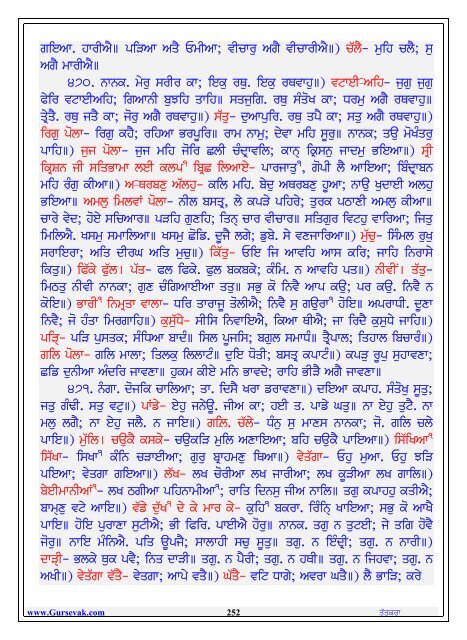 ਗਇਆ. ਹਾਰੀਐ॥ ਪੜਿਆ ਅਤੈ ਓਮੀਆ; ਵੀਚਾਰੁ ਅਗੈ ਵੀਚਾਰੀਐ॥) ਚੱਲੈ- ਮੁਹਿ ਚਲੈ; ਸੁ
ਅਗੈ ਮਾਰੀਐ॥
੪੭੦. ਨਾਨਕ. ਮੇਰੁ ਸਰੀਰ ਕਾ; ਇਕੁ ਰਥੁ. ਇਕੁ ਰਥਵਾਹੁ॥) ਵਟਾਈ-ਅਹਿ- ਜੁਗੁ ਜੁਗੁ
ਫੇਰਿ ਵਟਾਈਅਹਿ; ਗਿਆਨੀ ਬੁਝਹਿ ਤਾਹਿ॥ ਸਤਜੁਗਿ. ਰਥੁ ਸੰਤੋਖ ਕਾ; ਧਰਮੁ ਅਗੈ ਰਥਵਾਹੁ॥
ਤ੍ਰੇਤੈ. ਰਥੁ ਜਤੈ ਕਾ; ਜੋਰੁ ਅਗੈ ਰਥਵਾਹੁ॥) ਸੱਤੁ- ਦੁਆਪੁਰਿ. ਰਥੁ ਤਪੈ ਕਾ; ਸਤੁ ਅਗੈ ਰਥਵਾਹੁ॥)
ਰਿਗੁ ਪੋਲਾ- ਰਿਗੁ ਕਹੈ; ਰਹਿਆ ਭਰਪੂਰਿ॥ ਰਾਮ ਨਾਮੁ; ਦੇਵਾ ਮਹਿ ਸੂਰੁ॥ ਨਾਨਕ; ਤਉ ਮੋਖੰਤਰੁ
ਪਾਹਿ॥) ਜੁਜ ਪੋਲਾ- ਜੁਜ ਮਹਿ ਜੋਰਿ ਛਲੀ ਚੰਦ੍ਰਾਵਲਿ; ਕਾਨ੍ ਕ੍ਰਿਸਨੁ ਜਾਦਮੁ ਭਇਆ॥) ਸ੍ਰੀ
ਕ੍ਰਿਸ਼ਨ ਜੀ ਸਤਿਭਾਮਾ ਲਈ ਕਲਪ ਬ੍ਰਿਛ ਲਿਆਏ- ਪਾਰਜਾਤੁ, ਗੋਪੀ ਲੈ ਆਇਆ; ਬਿੰਦ੍ਰਾਬਨ
ਮਹਿ ਰੰਗੁ ਕੀਆ॥) ਅ-ਥਰਬਣੁ ਅੱਲਹੁ- ਕਲਿ ਮਹਿ. ਬੇਦੁ ਅਥਰਬਣੁ ਹੂਆ; ਨਾਉ ਖੁਦਾਈ ਅਲਹੁ
ਭਇਆ॥ ਅਮਲੁ ਮਿਲਵਾਂ ਪੋਲਾ- ਨੀਲ ਬਸਤ੍ਰ, ਲੇ ਕਪੜੇ ਪਹਿਰੇ; ਤੁਰਕ ਪਠਾਣੀ ਅਮਲੁ ਕੀਆ॥
ਚਾਰੇ ਵੇਦ; ਹੋਏ ਸਚਿਆਰ॥ ਪੜਹਿ ਗੁਣਹਿ; ਤਿਨ੍ ਚਾਰ ਵੀਚਾਰ॥ ਸਤਿਗੁਰ ਵਿਟਹੁ ਵਾਰਿਆ; ਜਿਤੁ
ਮਿਲਿਐ. ਖਸਮੁ ਸਮਾਲਿਆ॥ ਖਸਮੁ ਛੋਡਿ. ਦੂਜੈ ਲਗੇ; ਡੁਬੇ. ਸੇ ਵਣਜਾਰਿਆ॥) ਮੁੱਚੁ- ਸਿੰਮਲ ਰੁਖੁ
ਸਰਾਇਰਾ; ਅਤਿ ਦੀਰਘ ਅਤਿ ਮੁਚੁ॥) ਕਿੱਤੁ- ਓਇ ਜਿ ਆਵਹਿ ਆਸ ਕਰਿ; ਜਾਹਿ ਨਿਰਾਸੇ
ਕਿਤੁ॥) ਫਿੱਕੇ ਫੁੱਲ। ਪੱਤ- ਫਲ ਫਿਕੇ. ਫੁਲ ਬਕਬਕੇ; ਕੰਮਿ. ਨ ਆਵਹਿ ਪਤ॥) ਨੀਵੀਂ। ਤੱਤੁ-
ਮਿਠਤੁ ਨੀਵੀ ਨਾਨਕਾ; ਗੁਣ ਚੰਗਿਆਈਆ ਤਤੁ॥ ਸਭੁ ਕੋ ਨਿਵੈ ਆਪ ਕਉ; ਪਰ ਕਉ. ਨਿਵੈ ਨ
ਕੋਇ॥) ਭਾਰੀ ਨਿਮ੍ਰਤਾ ਵਾਲਾ- ਧਰਿ ਤਾਰਾਜੂ ਤੋਲੀਐ; ਨਿਵੈ ਸੁ ਗਉਰਾ ਹੋਇ॥ ਅਪਰਾਧੀ. ਦੂਣਾ
ਨਿਵੈ; ਜੋ ਹੰਤਾ ਮਿਰਗਾਹਿ॥) ਕੁਸੁੱਧੇ- ਸੀਸਿ ਨਿਵਾਇਐ, ਕਿਆ ਥੀਐ; ਜਾ ਰਿਦੈ ਕੁਸੁਧੇ ਜਾਹਿ॥)
ਪੜ੍ਹਿ- ਪੜਿ ਪੁਸਤਕ; ਸੰਧਿਆ ਬਾਦੰ॥ ਸਿਲ ਪੂਜਸਿ; ਬਗੁਲ ਸਮਾਧੰ॥ ਤ੍ਰੈਪਾਲ; ਤਿਹਾਲ ਬਿਚਾਰੰ॥)
ਗਲਿ ਪੋਲਾ- ਗਲਿ ਮਾਲਾ; ਤਿਲਕੁ ਲਿਲਾਟੰ॥ ਦੁਇ ਧੋਤੀ; ਬਸਤ੍ਰ ਕਪਾਟੰ॥) ਕਪੜੁ ਰੂਪੁ ਸੁਹਾਵਣਾ;
ਛਡਿ ਦੁਨੀਆ ਅੰਦਰਿ ਜਾਵਣਾ॥ ਹੁਕਮ ਕੀਏ ਮਨਿ ਭਾਵਦੇ; ਰਾਹਿ ਭੀੜੈ ਅਗੈ ਜਾਵਣਾ॥
੪੭੧. ਨੰਗਾ. ਦੋਜਕਿ ਚਾਲਿਆ; ਤਾ. ਦਿਸੈ ਖਰਾ ਡਰਾਵਣਾ॥) ਦਇਆ ਕਪਾਹ. ਸੰਤੋਖੁ ਸੂਤੁ;
ਜਤੁ ਗੰਢੀ. ਸਤੁ ਵਟੁ॥) ਪਾਂਡੇ- ਏਹੁ ਜਨੇਊ. ਜੀਅ ਕਾ; ਹਈ ਤ. ਪਾਡੇ ਘਤੁ॥ ਨਾ ਏਹੁ ਤੁਟੈ. ਨਾ
ਮਲੁ ਲਗੈ; ਨਾ ਏਹੁ ਜਲੈ. ਨ ਜਾਇ॥) ਗਲਿ. ਚੱਲੇ- ਧੰਨੁ ਸੁ ਮਾਣਸ ਨਾਨਕਾ; ਜੋ. ਗਲਿ ਚਲੇ
ਪਾਇ॥) ਮੁੱਲਿ। ਚਉਕੈ ਕਸਕੇ- ਚਉਕੜਿ ਮੁਲਿ ਅਣਾਇਆ; ਬਹਿ ਚਉਕੈ ਪਾਇਆ॥) ਸਿੱਖਿਆ
ਸਿੱਖਾ- ਸਿਖਾ ਕੰਨਿ ਚੜਾਈਆ; ਗੁਰੁ ਬ੍ਰਾਹਮਣੁ ਥਿਆ॥) ਵੇਤੱਗਾ- ਓਹੁ ਮੁਆ. ਓਹੁ ਝੜਿ
ਪਇਆ; ਵੇਤਗਾ ਗਇਆ॥) ਲੱਖ- ਲਖ ਚੋਰੀਆ ਲਖ ਜਾਰੀਆ; ਲਖ ਕੂੜੀਆ ਲਖ ਗਾਲਿ॥)
ਬੇਈਮਾਨੀਆਂ- ਲਖ ਠਗੀਆ ਪਹਿਨਾਮੀਆ; ਰਾਤਿ ਦਿਨਸੁ ਜੀਅ ਨਾਲਿ॥ ਤਗੁ ਕਪਾਹਹੁ ਕਤੀਐ;
ਬਾਮ੍ਣੁ ਵਟੇ ਆਇ॥) ਵੱਡੇ ਦੁੱਖ ਦੇ ਕੇ ਮਾਰ ਕੇ- ਕੁਹਿ ਬਕਰਾ. ਰਿੰਨ੍ਹਿ ਖਾਇਆ; ਸਭੁ ਕੋ ਆਖੈ
ਪਾਇ॥ ਹੋਇ ਪੁਰਾਣਾ ਸੁਟੀਐ; ਭੀ ਫਿਰਿ. ਪਾਈਐ ਹੋਰੁ॥ ਨਾਨਕ. ਤਗੁ ਨ ਤੁਟਈ; ਜੇ ਤਗਿ ਹੋਵੈ
ਜੋਰੁ॥ ਨਾਇ ਮੰਨਿਐ. ਪਤਿ ਊਪਜੈ; ਸਾਲਾਹੀ ਸਚੁ ਸੂਤੁ॥ ਤਗੁ. ਨ ਇੰਦ੍ਰੀ; ਤਗੁ. ਨ ਨਾਰੀ॥)
ਦਾੜ੍ਹੀ- ਭਲਕੇ ਥੁਕ ਪਵੈ; ਨਿਤ ਦਾੜੀ॥ ਤਗੁ. ਨ ਪੈਰੀ; ਤਗੁ. ਨ ਹਥੀ॥ ਤਗੁ. ਨ ਜਿਹਵਾ; ਤਗੁ. ਨ
ਅਖੀ॥) ਵੇਤੱਗਾ ਵੱਤੈ- ਵੇਤਗਾ; ਆਪੇ ਵਤੈ॥) ਘੱਤੈ- ਵਟਿ ਧਾਗੇ; ਅਵਰਾ ਘਤੈ॥) ਲੈ ਭਾੜਿ; ਕਰੇ
www.Gursevak.com 252 ਤੱਤਕਰਾ